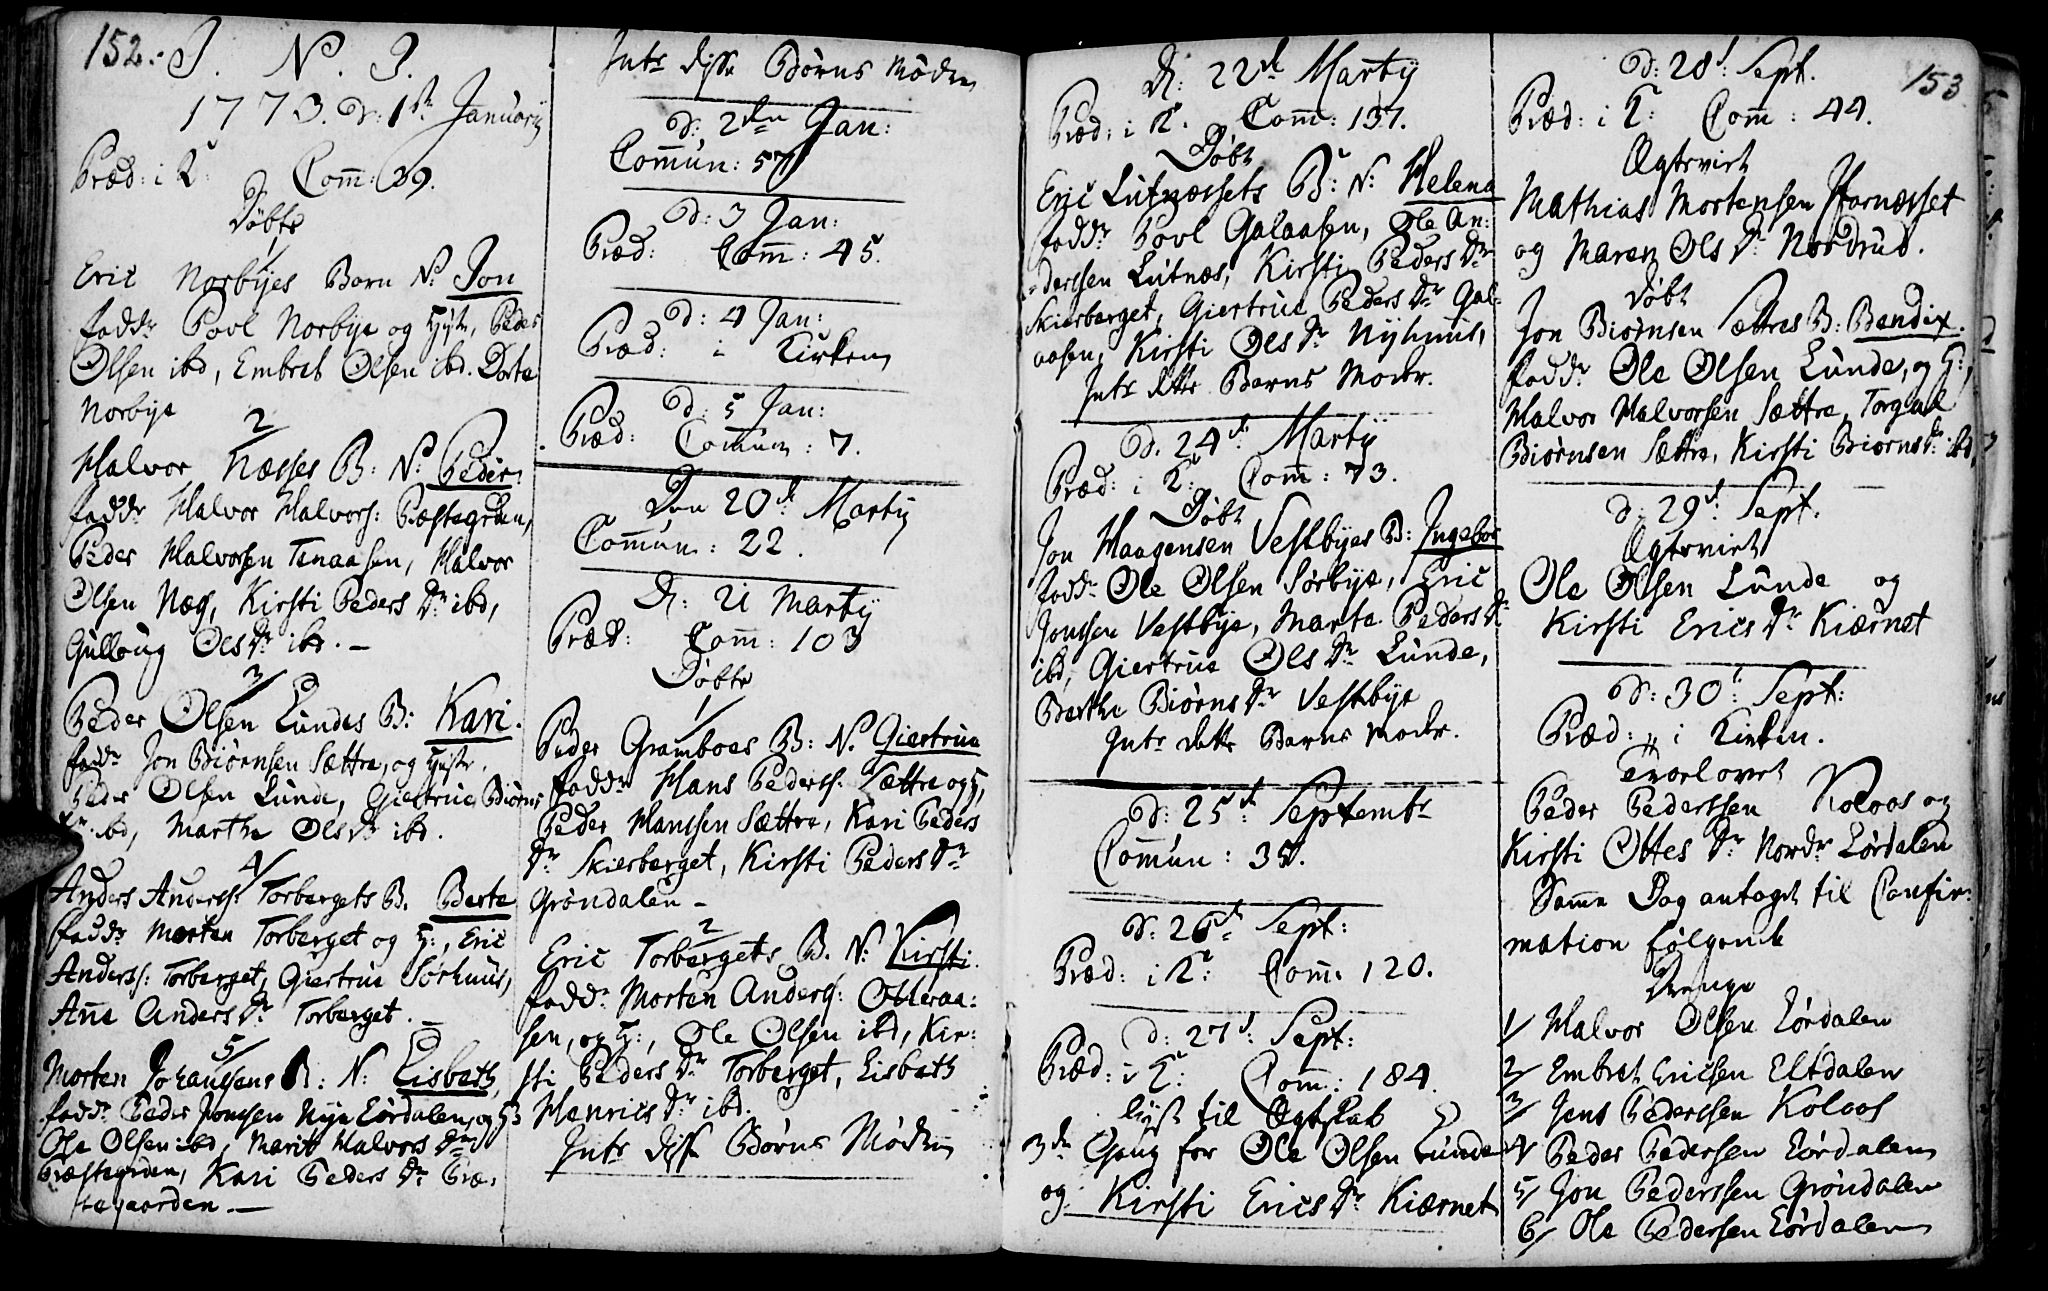 152. J. N. J.
1773. d: 1ste January
Præd: i K: Com̄: 39.
Døbte
1/
Eric Norbyes Barn N: Jon
fadd: Povl Norbye og Hustr, Peder
Olsen ibd, Embret Olsen ibd. Dorte
Norbye
2/
Halvor Næsses B: N: Peder
fadd: Halvor Halvors: Præstegrden,
Peder Halvorsen Tanaasen, Halvor
Olsen Næs, Kirsti Peders Dr ibd,
Gulloug Ols Dr ibd. —
3/
Peder Olsen Lundes B: Kari.
fadd: Jon Biørnsen Sættre, og Hustr.
Peder Olsen Lunde, Giertrue Biørns
Dr. ibd, Marthe Ols Dr ibd.
4/
Anders Anders: Torbergets B. Berte
fadd: Morten Torberget og H:, Eric
Anders: Torberget, Giertrue Sørhuus,
Anne Anders Dr Torberget. —
5/
Morten Johansens B: N: Lisbeth,
fadd: Peder Jonssen Nye Lørdalen, og H
Ole Olsen ibd, Marit Halvors Dr
Præstegrden, Kari Peders Dr Præ-
stegaarden. —
Intr disse Børns Mødre
d: 2den Jan:
Commun: 57
d: 3 Jan:
Præd: Com̄: 45.
d: 4 Jan:
Præd: i Kirken
d: 5 Jan:
Præd: Comun: 7.
Den 20de Martij
Commun: 22.
D: 21 Martij
Præd: Com̄: 103
Døbte
1/
Peder Gramboes B: N. Giertrue
fadd: Hans Peders: Sættre og H,
Peder Hanssen Sættre, Kari Peders
Dr Skierberget, Kirsti Peders Dr
Grøndalen —
2/
Eric Torbergets B. N: Kirsti.
fadd: Morten Anders: Otteraa-
sen, og H:, Ole Olsen ibd, Kir-
sti Peders Dr Torberget, Lisbeth
Henrics Dr ibd.
Intr disse Børns Mødre
D: 22de Martij
Præd: i K. Com̄: 137.
Døbt
Eric Lutnæssets B: N: Helena
fadd: Povl Galaasen, Ole An-
derssen Lutnæs, Kirsti Peders Dr
Skierberget, Giertrue Peders Dr Gal-
aasen, Kirsti Ols Dr Nyhuus,
Intr dette Barns Moder.
D. 24de Martij
Præd: i K: Com̄: 73.
Døbt
Jon Haagensen Vestbyes B: Ingebor
fadd: Ole Olsen Sørbye, Eric
Jonssen Vestbye, Marta Peders Dr
ibd, Giertrue Ols Dr Lunde,
Berthe Biørns Dr Vestbye
Intr dette Barns Moder.
D: 25de Septembr
Commun: 35.
d: 26de Sept:
Præd: i K: Com̄. 120.
d: 27de Sept:
Præd: i K: Com̄: 184.
lyst til Ægteskab
3de Gang for Ole Olsen Lunde
og Kirsti Erics Dr Kiærnet
d: 28de Sept. 153
Præd: i K: Com̄: 44.
Ægtevict
Mathias Mortensen Hornæsset
og Maren Ols Dr Nordrud.
Døbt
Jon Biørnsen Sættres B: Bendix.
fadd: Ole Olsen Lunde, og H:,
Halvor Halvorsen Sættre, Torgal
Biørnsen Sættre, Kirsti Biørnsdr: ibd,
d: 29de Sept:
Ægtevict
Ole Olsen Lunde og
Kirsti Erics Dr Kiærnet
d: 30de Sept:
Præd: i Kirken.
Troelovet
Peder Pederssen Koloos og
Kirsti Ottes Dr Nordr Lørdalen
Samme Dag antaget til Confir-
mation følgende
Drenge
1/ Halvor Olsen Lørdalen
2/ Embret Ericsen Eltdalen
3/ Jens Pederssen Koloos
4 Peder Pedersen Lørdalen
5/ Jon Pederssen Grøndalen
6/ Ole Pederssen Lørdalen